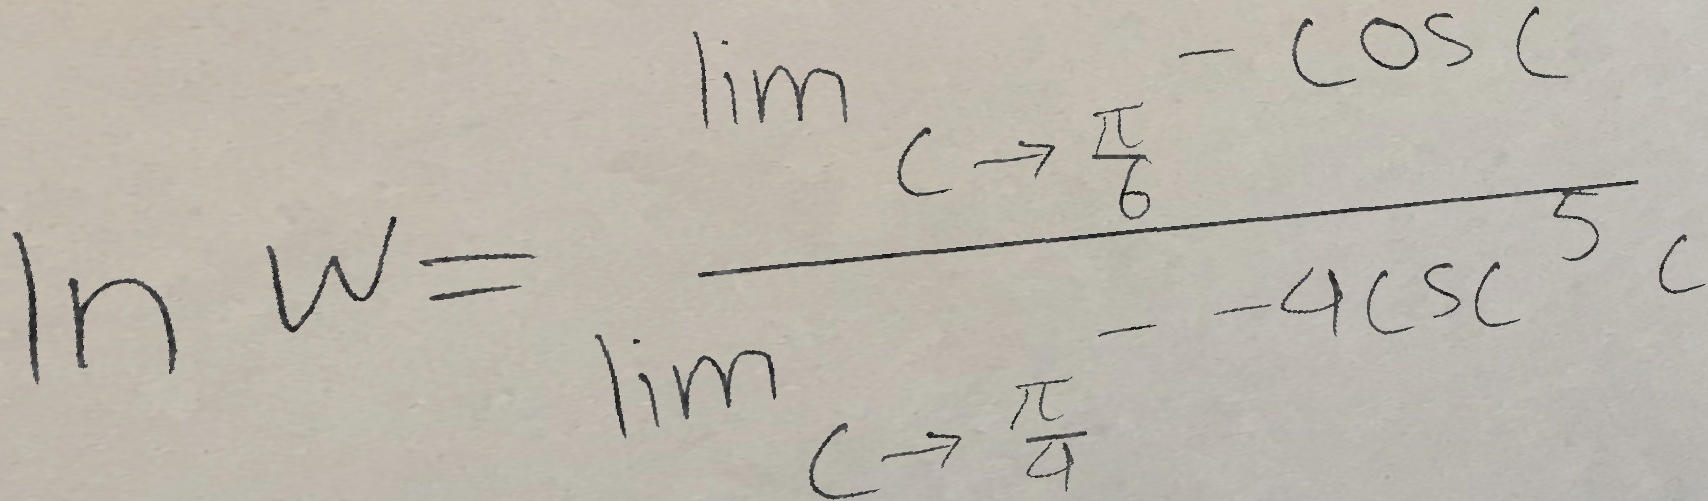 ln w = \frac{\lim_{c \to \frac{\pi}{6}} - \cos c}{\lim_{c \to \frac{\pi}{4}} - -4 \csc^5 c}